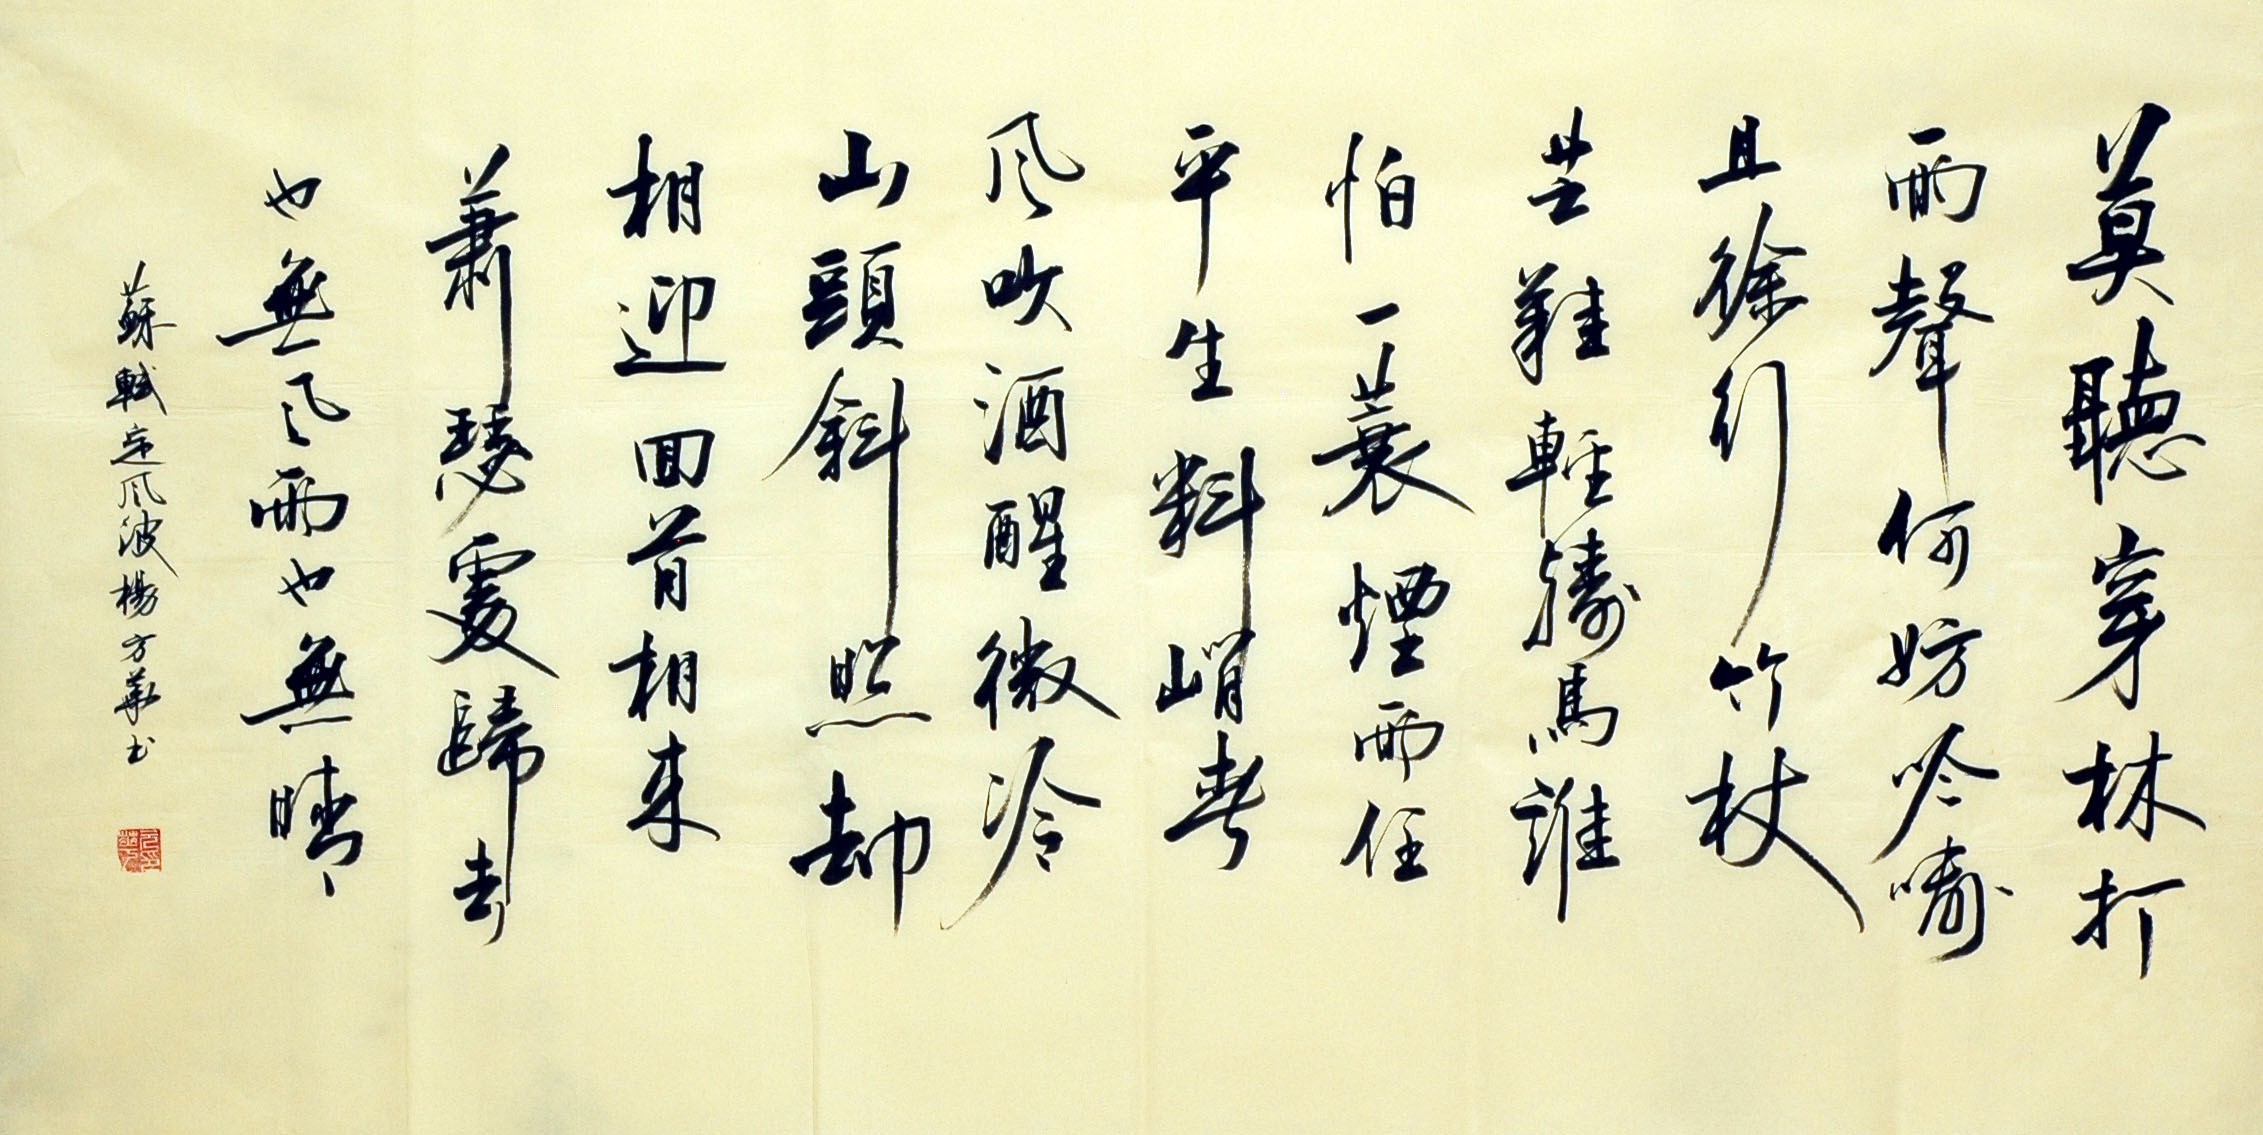 莫聽穿林打
雨聲何妨吟嘯
且徐行竹杖
芒鞋輕勝馬誰
怕一蓑煙雨任
平生料峭春
风吹酒醒微冷
山頭斜照却
相迎回首相来
蕭瑟處歸去
也無风雨也無晴
蘇軾定风波楊方華书